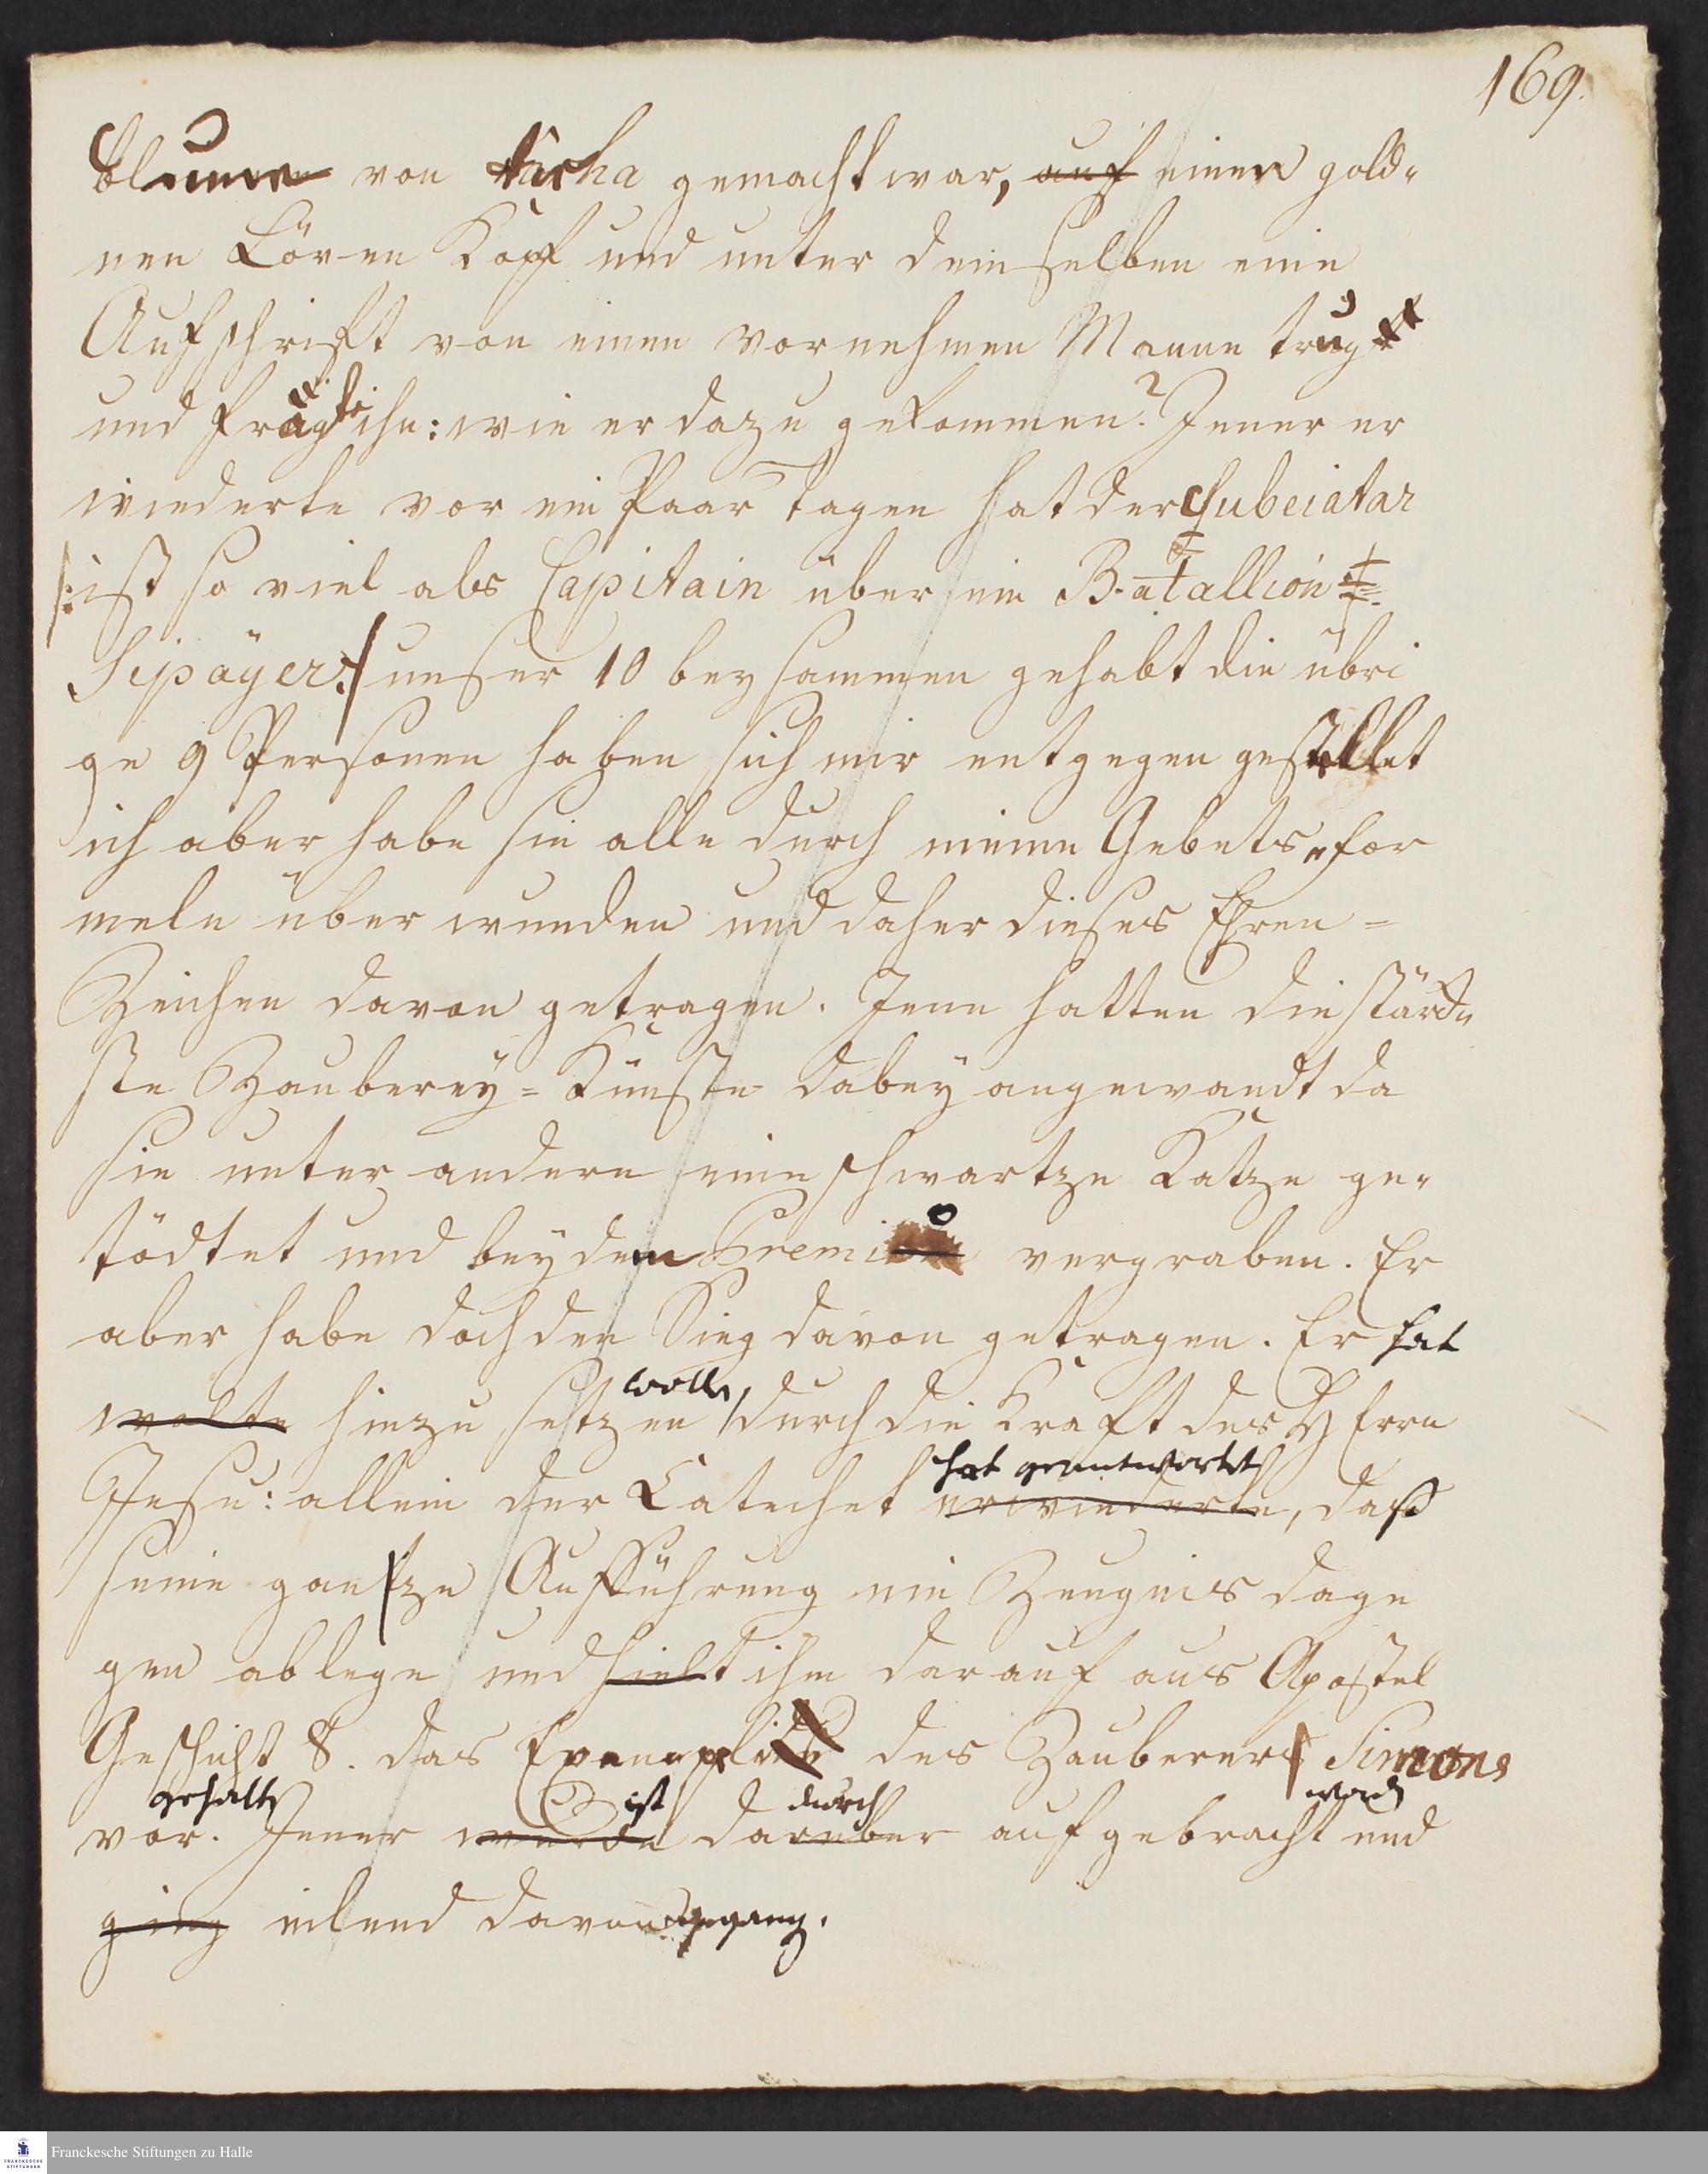 169.
blume von gemacht war, auf einen gold-
nen Löwen Kopf und unter demselben eine
Aufschrift von einen vornehmen Manne trug
und fragte ihn: wie er dazu gekommen? Jener er
wiederte vor ein Paar Tagen hat der Subeiatar
/: ist so viel als Capitain über ein Batallion
Sipäyer :/ unser 10 beysammen gehabt die übri
ge 9 Personen haben sich mir entgegen gestellet
ich aber habe sie alle durch meine Gebets-for
meln überwunden und daher dieses Ehren=
Zeichen davon getragen. Jene hatten die stärck-
ste Zauberey=Künste dabey angewandt da
sie unter andern eine schwartze Katze ge-
tödtet und bey dem vergraben. Er
aber habe doch den Sieg davon getragen. Er hat
wolte hinzu setzen wolln, durch die Kraft des HErrn
Jesu: allein der Catechet erwiederte hat geantwortet, daß
seine gantze Aufführung ein Zeugnis dage
gen ablege und hielt ihm darauf aus Apostel
Geschicht 8. das des Zauberers Simons
vor. gehalten Jener wurde ist darüber dadurch aufgebracht word und
ging eilend davon gegang.
Franckesche Stiftungen zu Halle
FRANCKESCHE
STIFTUNGEN